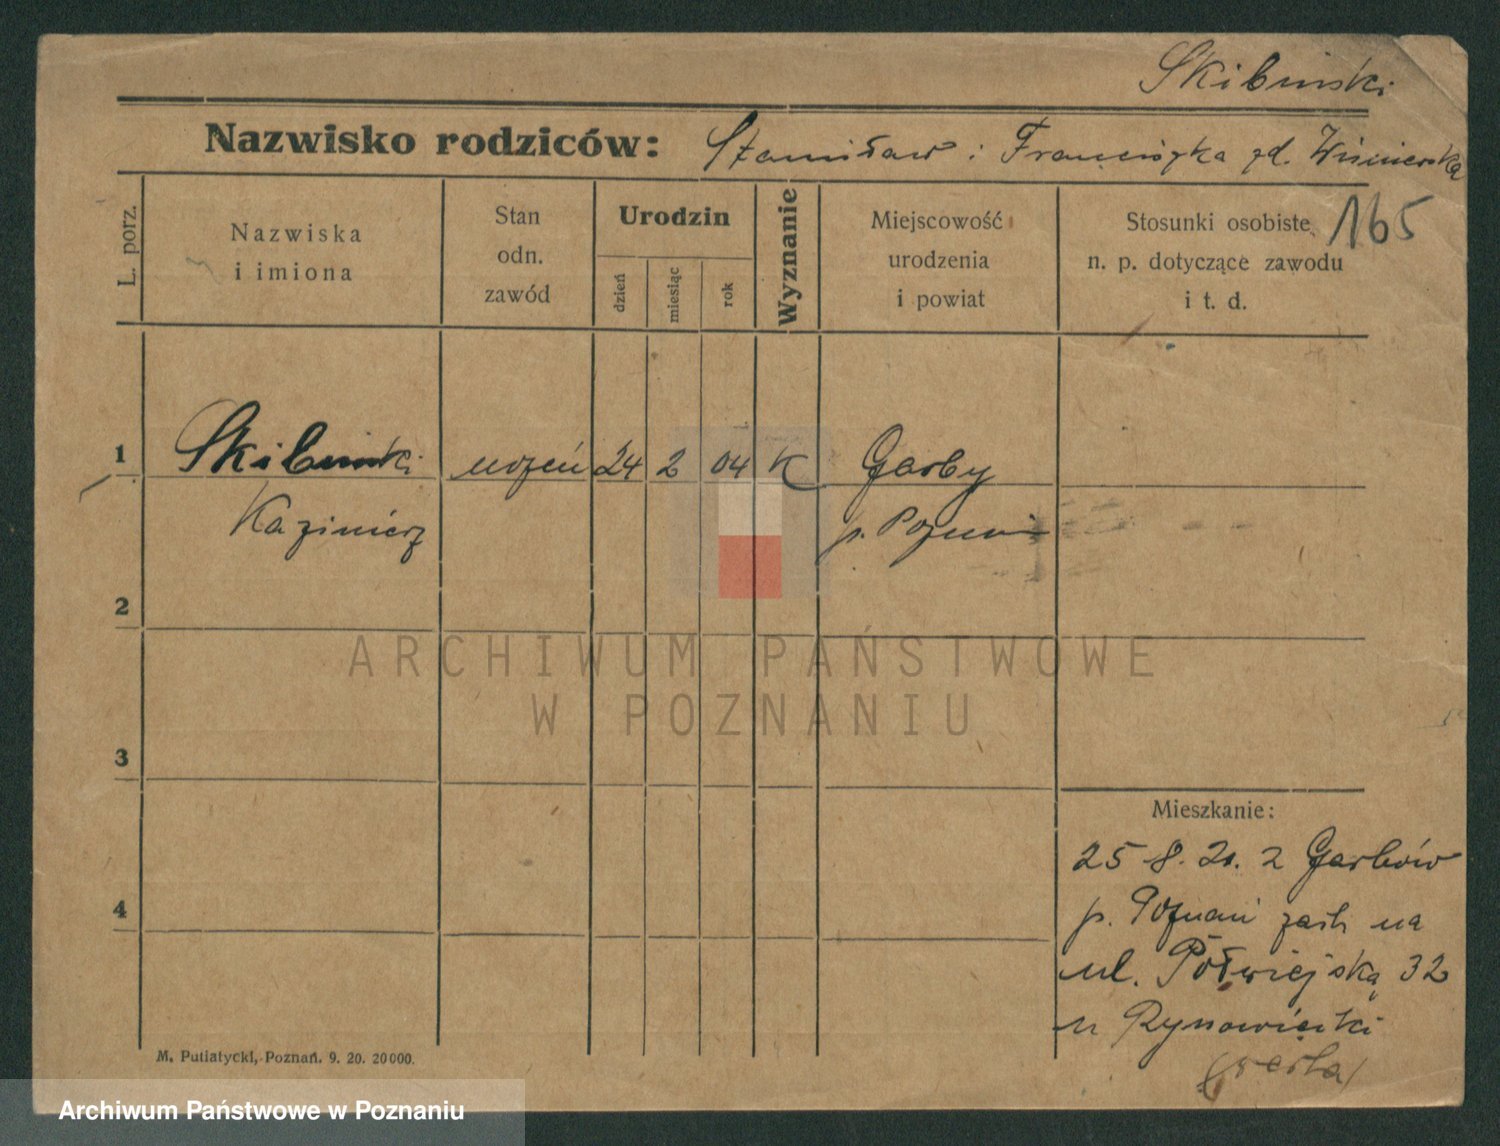 Skibiński
Nazwisko rodziców: Stanisław i Franciszka zd. Wiśniewska
L. porz.
Nazwiska
i imiona
Stan
odn.
zawód
Urodzin
dzień
miesiąc
rok
Wyznanie
Miejscowość
urodzenia
i powiat
Stosunki osobiste
n. p. dotyczące zawodu
i t. d.
165
1 Skibiński uczeń 24 2 04 K Garby
Kazimierz p. Poznań
2
3
4
Mieszkanie:
25 8. 20. z Garbów
p. Poznań na
ul. Półwiejską 32
u
M. Putiatycki, Poznań. 9. 20. 20000.
ARCHIWUM PAŃSTWOWE
W POZNANIU
Archiwum Państwowe w Poznaniu